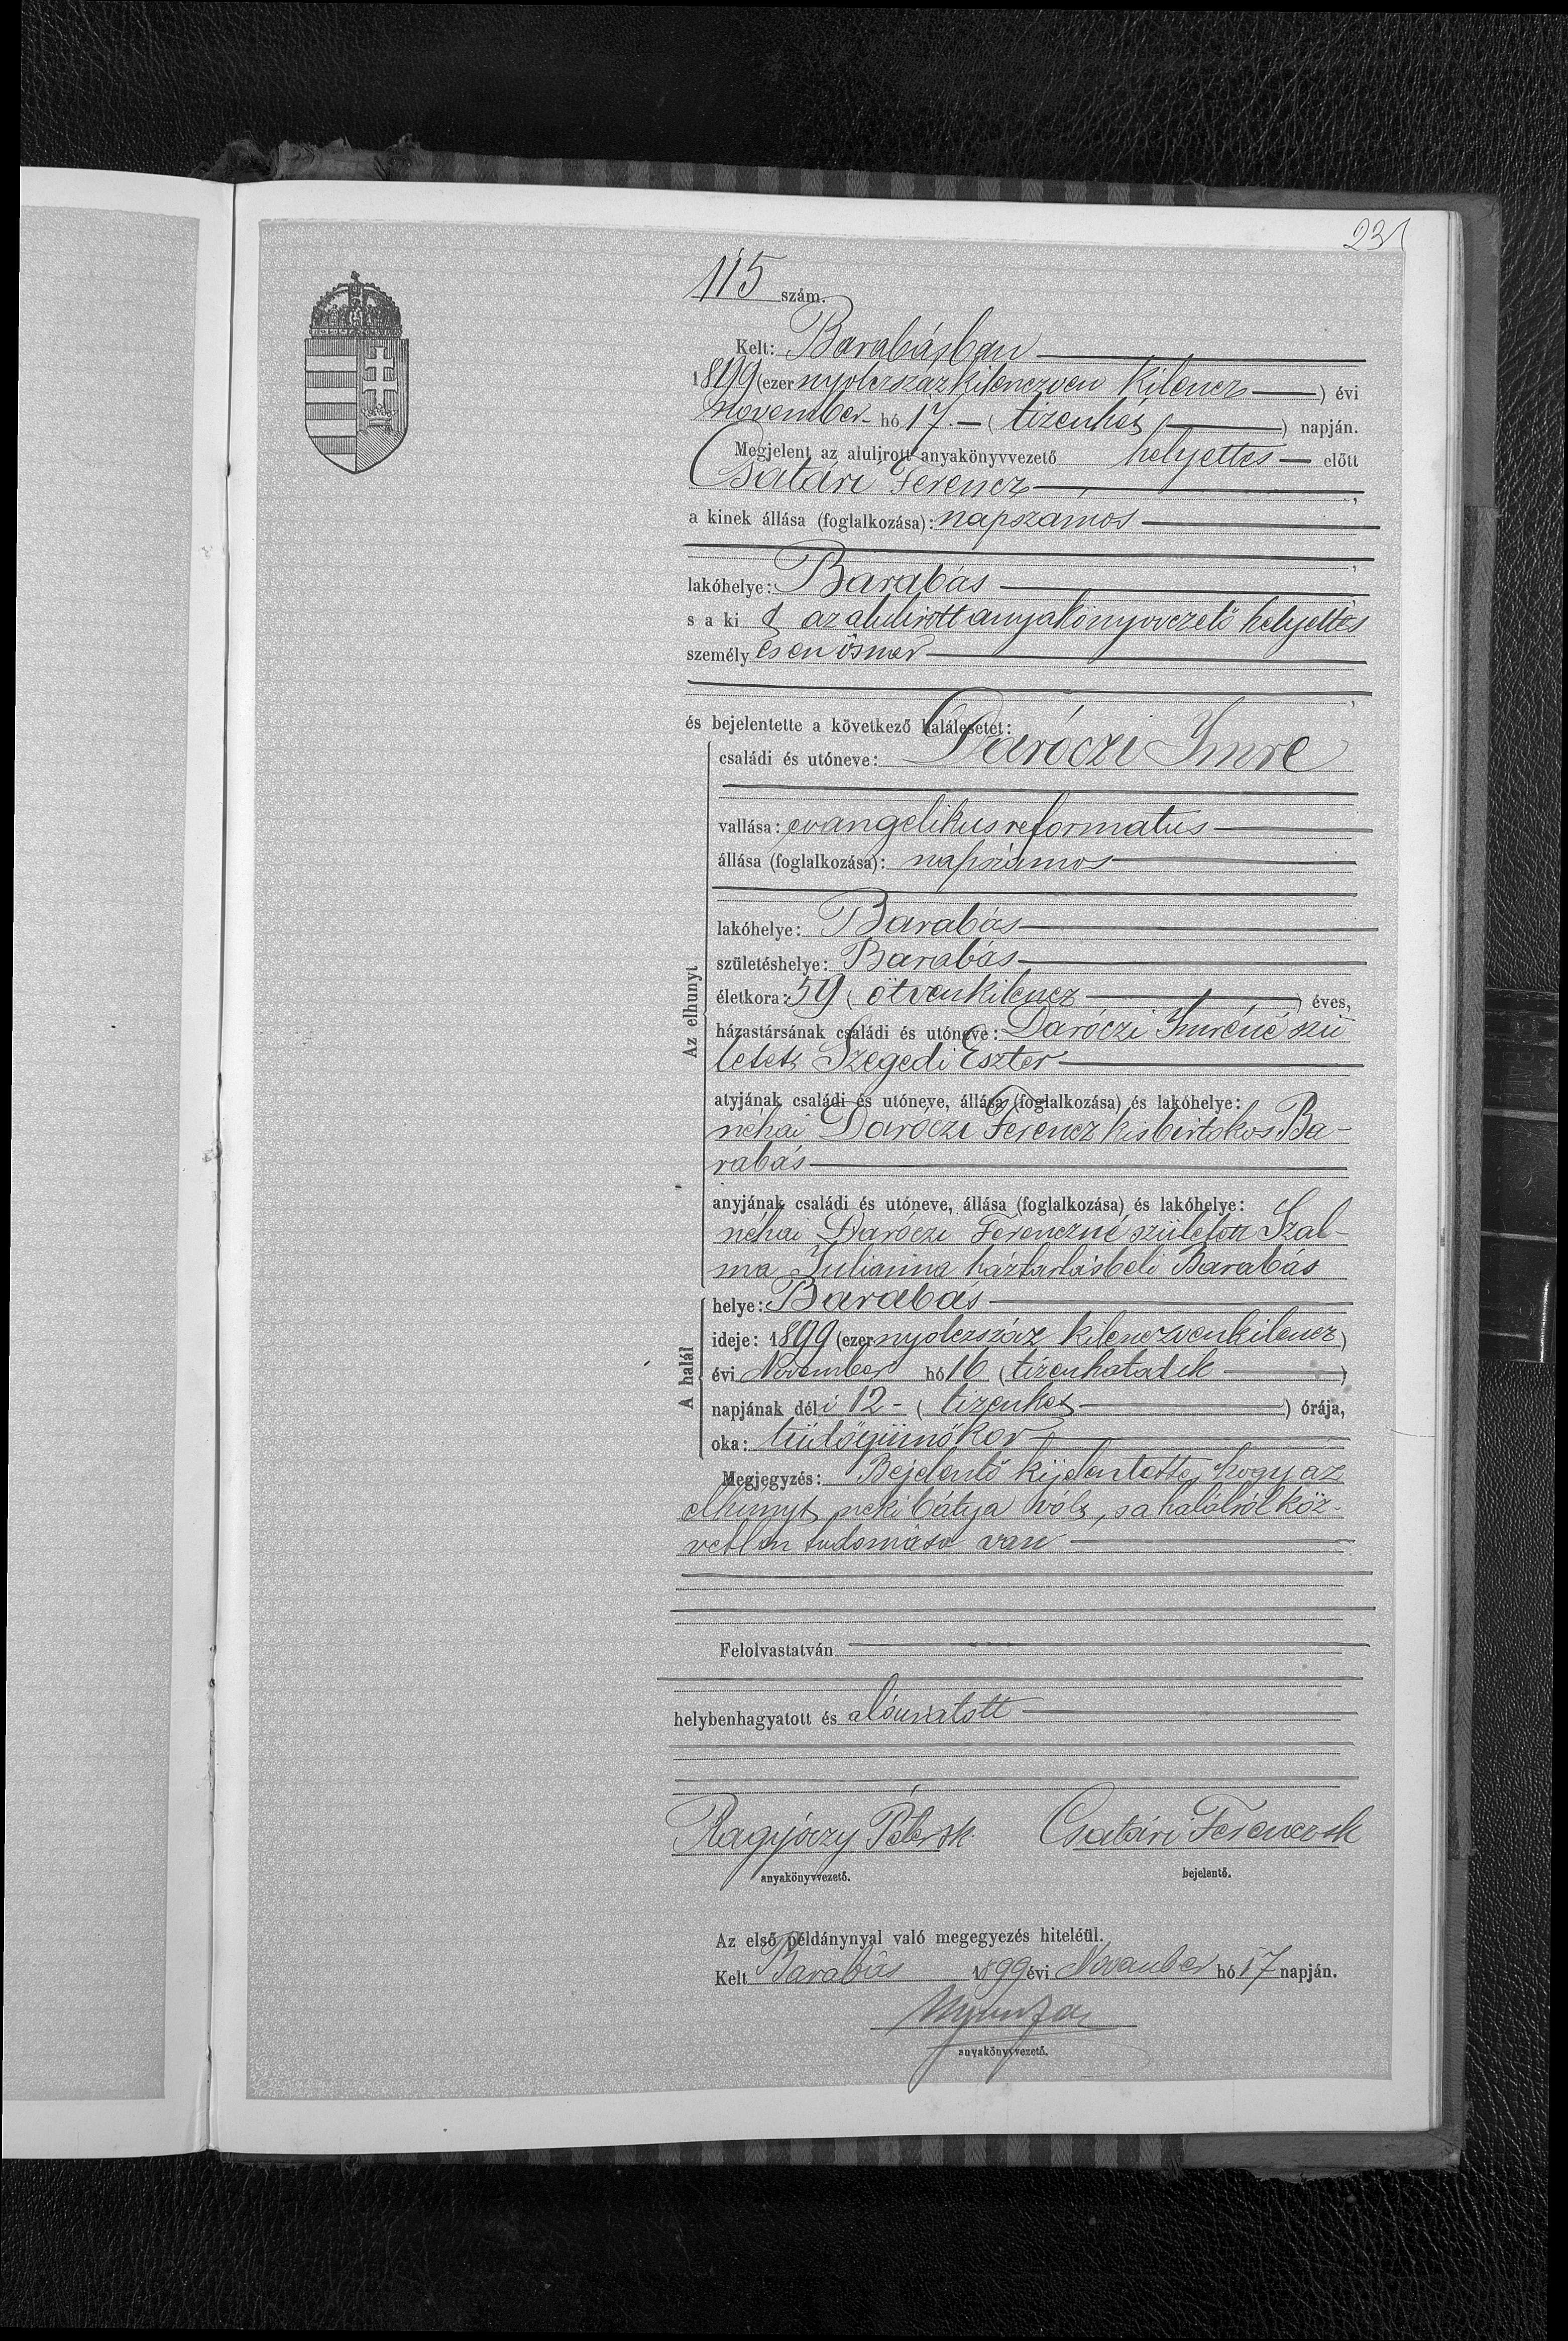 231
115 szám.
Kelt: Barabásban
1899 (ezer nyolczszázkilenczven kilencz) évi
november hó 17. (tizenhét) napján.
Megjelent az alulirott anyakönyvvezető helyettes előtt
Csatári Ferencz,
a kinek állása (foglalkozása): napszámos
lakóhelye: Barabás
s a ki t az alulirott anyakönyvvezető helyettes
személyesen ösmer
és bejelentette a következő halálesetet:
családi és utóneve: Daróczi Imre
vallása: evangelikus reformatus
állása (foglalkozása): napszámos
lakóhelye: Barabás
születéshelye: Barabás
Az elhunyt
életkora: 59 (ötvenkilencz) éves,
házastársának családi és utóneve: Daróczi Imréné szü
letett Szegedi Eszter
atyjának családi és utóneve, állása (foglalkozása) és lakóhelye:
néhai Daróczi Ferencz kisbirtokos Ba-
rabás
anyjának családi és utóneve, állása (foglalkozása) és lakóhelye:
néhai Daróczi Ferenczné született Szal-
ma Julianna háztartásbeli Barabás
A halál
helye: Barabás
ideje: 1899 (ezer nyolczszáz kilenczvenkilencz)
évi November hó 16 (tizenhatodik)
napjának déli 12 - (tizenkét) órája,
oka: tüdőgümőkor
Megjegyzés: Bejelentő kijelentette, hogy az
elhunyt neki bátyja vólt, s a halálról köz-
vetlen tudomása van
Felolvastatván
helybenhagyatott és aláiratott
Ragyóczy Péter sk. Csatári Ferencz sk
anyakönyvvezető. bejelentő.
Az első példánynyal való megegyezés hiteléül.
Kelt Barabás 1899 évi November hó 17 napján.
anyakönyvvezető.